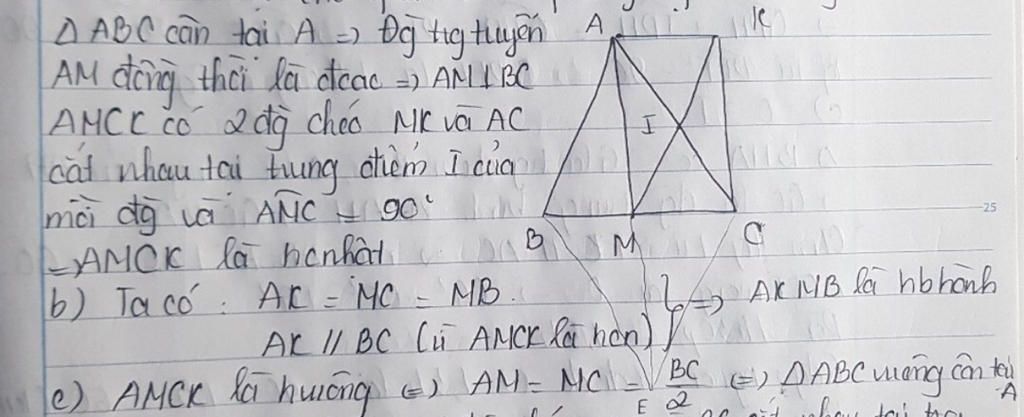 Δ ABC cân tại A => Đg trg tuyến
AM đồng thời là đcao => AM⊥BC
AMCK có 2 đg chéo MK và AC
cắt nhau tại trung điểm I của
mỗi đg và AMC = 90°
=> AMCK là hcnhật
b) Ta có : AK = MC = MB.
AK // BC (vì AMCK là hcn)
} => AKMB là hbhành
c) AMCK là hvuông <=> AM = MC = BC/2 <=> ΔABC vuông cân tại A
A K
I
B M C
E
25